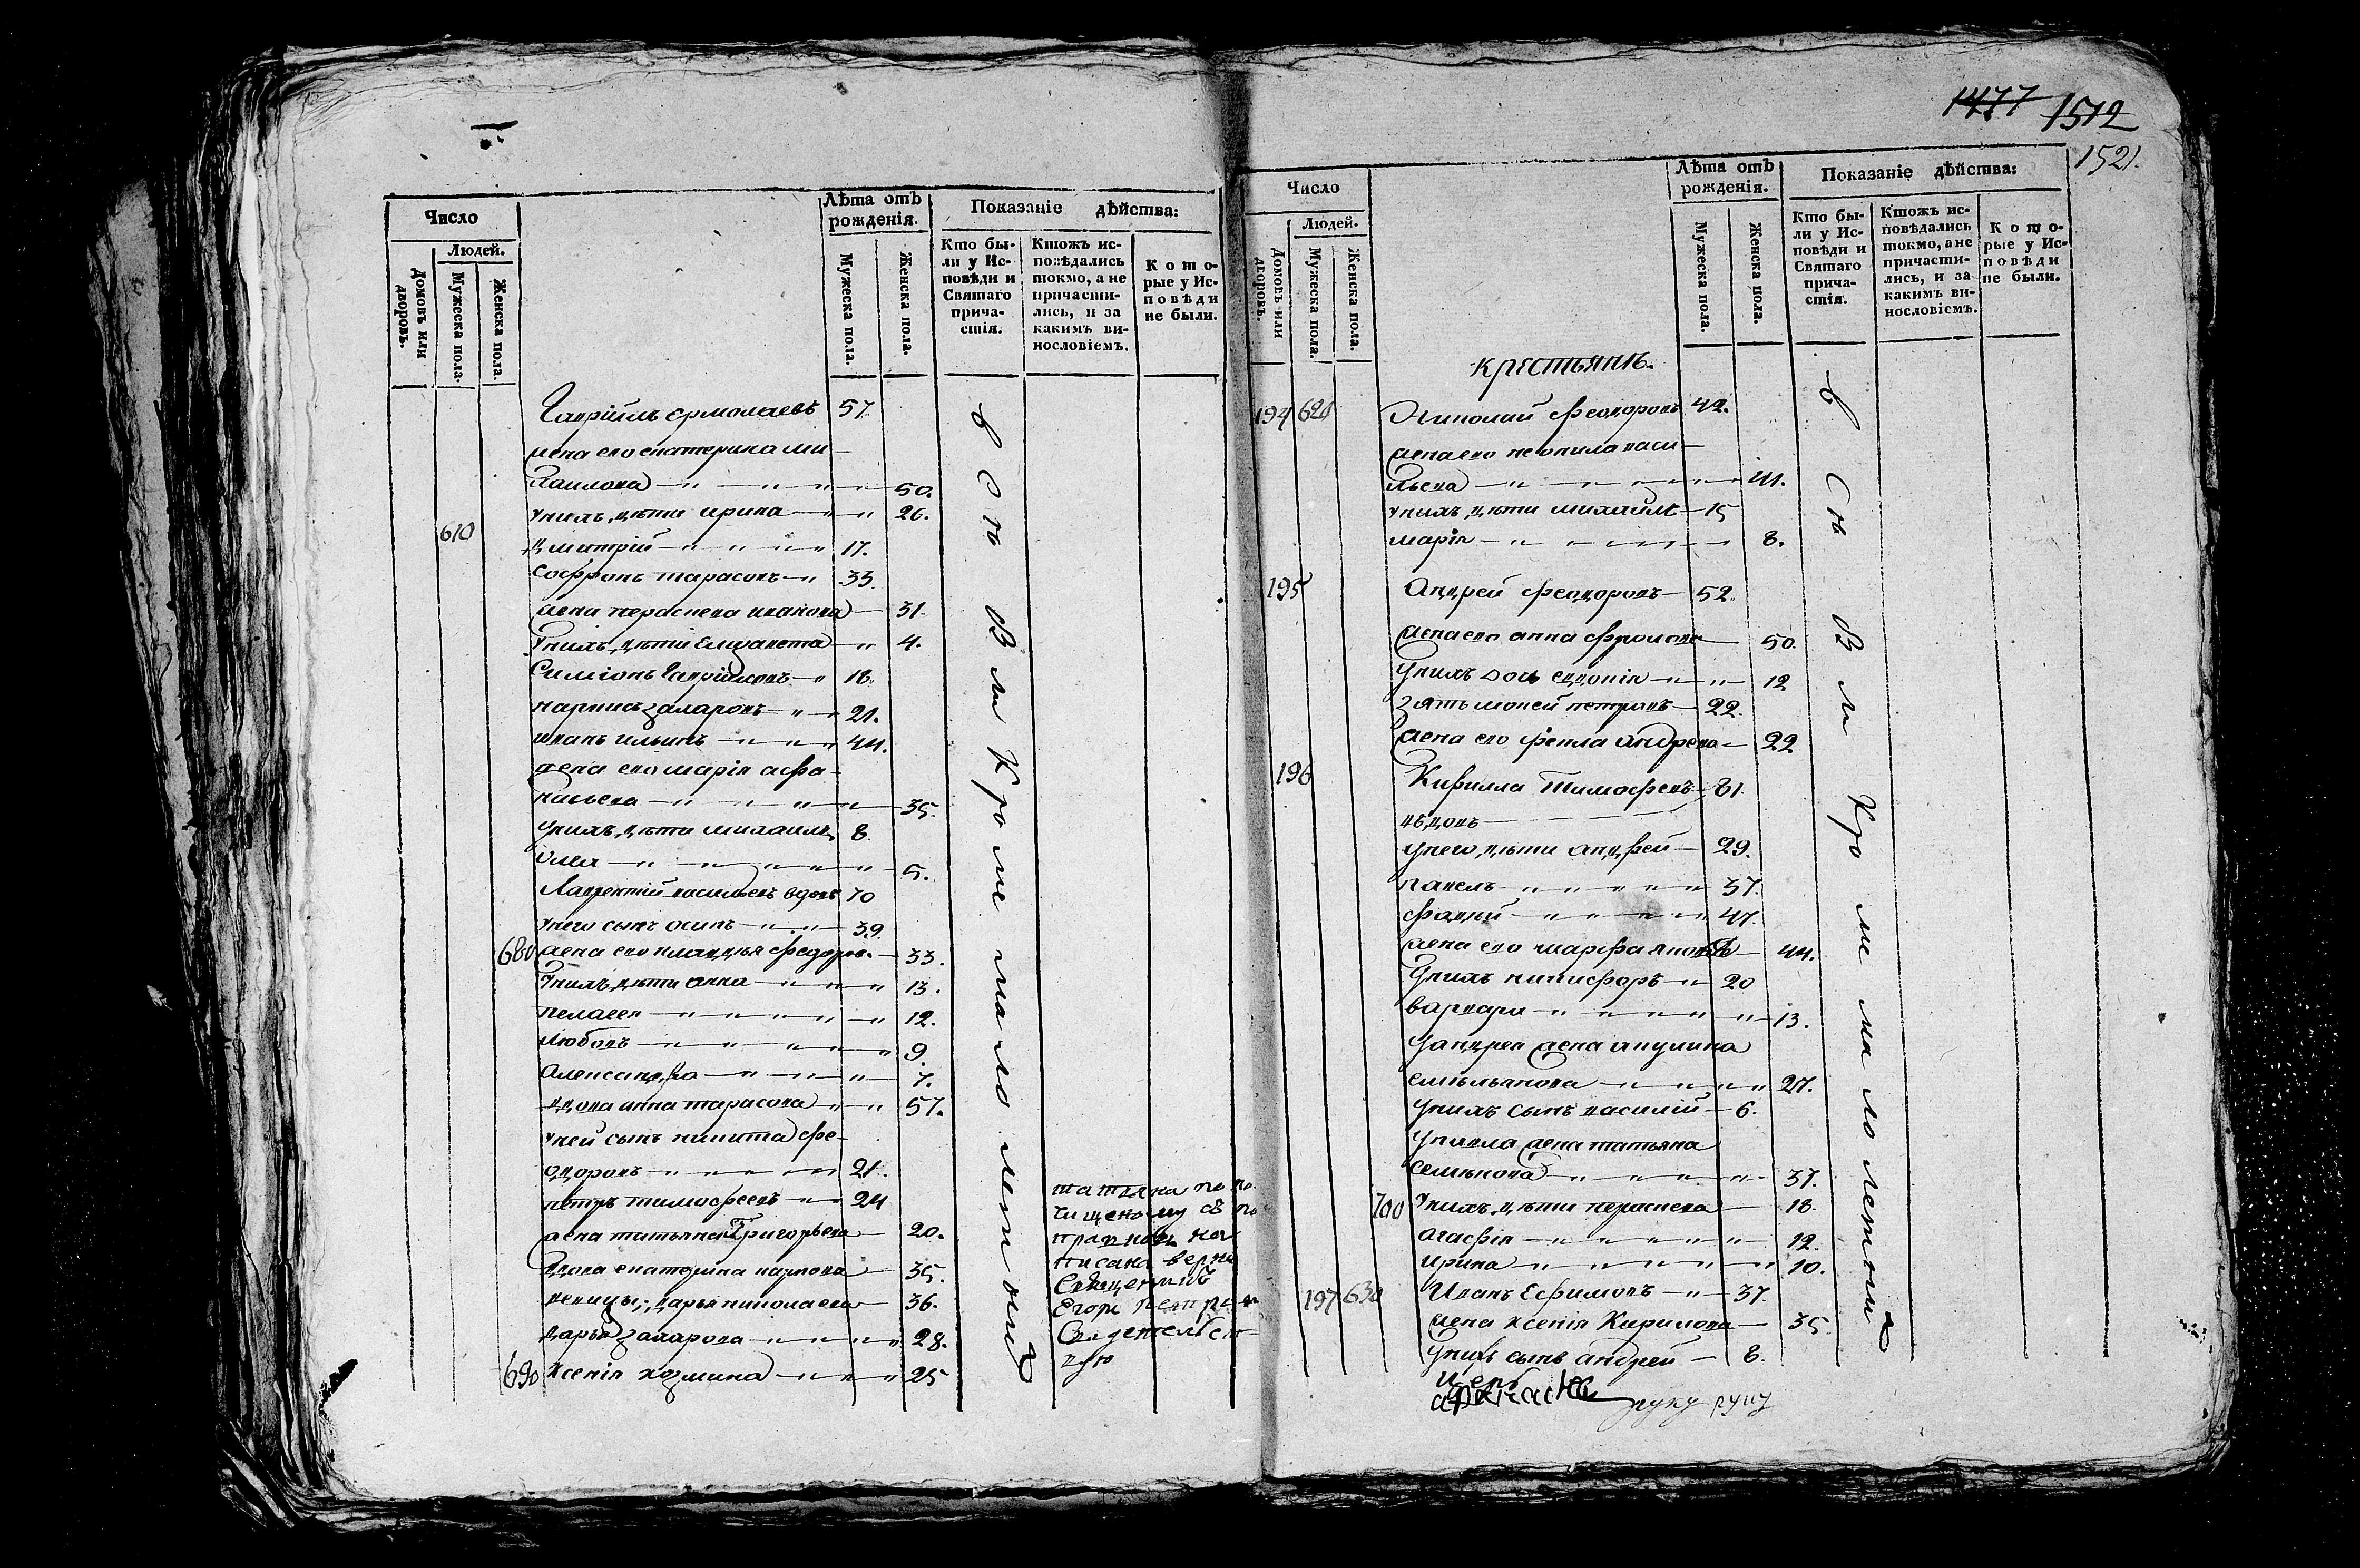 1477 1512
1521.
Число
Людей.
Домовъ или дворовъ.
Мужеска пола.
Женска пола.
Лѣта отъ рожденія.
Мужеска пола.
Женска пола.
Показаніе дѣйства:
Кто были у Исповѣди и Святаго причастія.
Ктожъ исповѣдались токмо, а не причастились, и за какимъ винословіемъ.
Которые у Исповѣди не были.
Гавріилъ ермолаевъ 57.
жена его екатерина ми
хаилова 50.
у нихъ дѣти ирина 26.
610 дмитрій 17.
Софронъ тарасовъ 33.
жена параскева иванова 31.
у нихъ дѣти Елизавета 4.
Симіонъ Гавріиловъ 18.
захаровъ 21.
иванъ ильинъ 44.
жена его марія афа
насьева 35.
у нихъ дѣти михаилъ 8.
5.
Лаврентій васильевъ вдовъ 70
у него сынъ осипъ 39.
680 жена его клавдія федоров. 33.
у нихъ дѣти анна 13.
пелагея 12.
любовь 9.
александра 7.
вдова анна тарасова 57.
у ней сынъ никита фе
одоровъ 21.
петръ тимофеевъ 24
жена татьяна Григорьева 20.
вдова екатерина карпова 35.
девицы, дарья николаева 36.
дарья захарова 28.
690 ксенія козмина 25
всѣ Были Кроме малолетныхъ
татяна по
написана верно
Священникъ
Егоръ Петров
Свидетельст
вую
Число
Людей.
Домовъ или дворовъ.
Мужеска пола.
Женска пола.
Лѣта отъ рожденія.
Мужеска пола.
Женска пола.
Показаніе дѣйства:
Кто были у Исповѣди и Святаго причастія.
Ктожъ исповѣдались токмо, а не причастились, и за какимъ винословіемъ.
Которые у Исповѣди не были.
крестьянъ.
194 620 Николай феодоровъ 42.
жена его неонила васи
льева 41.
у нихъ дѣти михаилъ 15
марія 8.
195 Андрей феодоровъ 52.
жена его анна фролова 50.
у нихъ дочь евдокія 12
зять мокей петровъ 22.
жена его фекла андреева 22
196 Кирилла тимофеевъ 81.
вдовъ
у него дѣти андрей 29.
павелъ 37.
фадей 47.
жена его марфа 44.
у нихъ никифоръ 20
варвара 13.
у андрея жена акулина
емельянова 27.
у нихъ сынъ василій 6.
у павла жена татьяна
семенова 37.
700 у нихъ дѣти параскева 18.
агафія 12.
ирина 10.
197 630 Иванъ Ефимовъ 37.
жена ксенія Кирилова 35.
у нихъ сынъ андрей 8.
всѣ Были Кроме малолетныхъ
афанасие руку